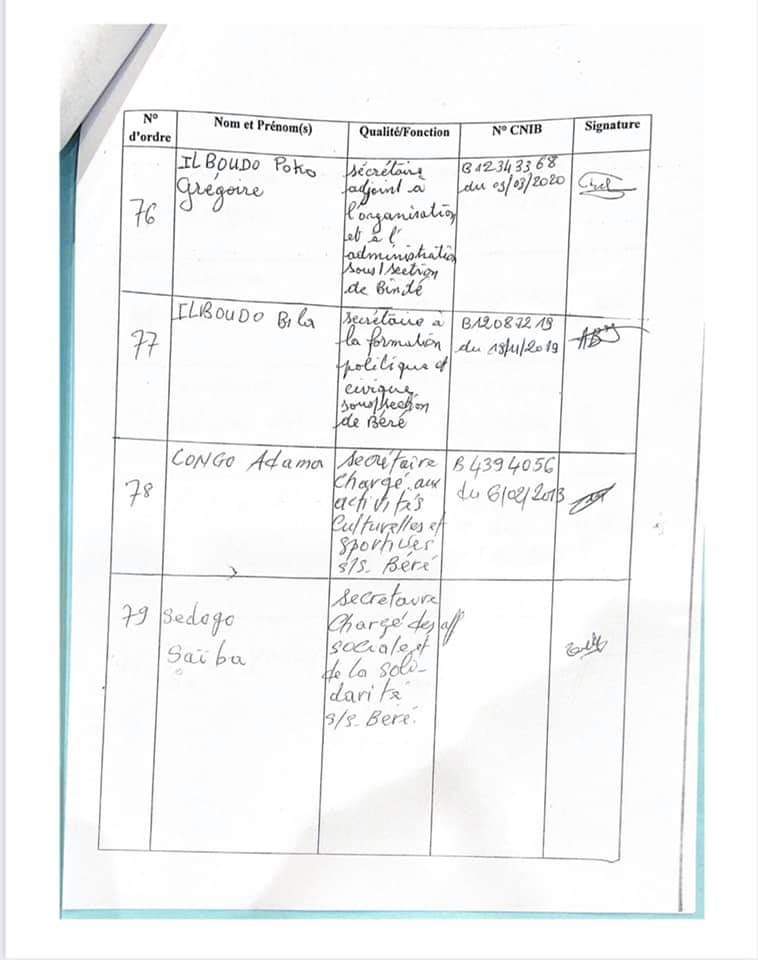 N° d'ordre
Nom et Prénom(s)
Qualité/Fonction
N° CNIB
Signature
76
ILBOUDO Poko
Grégoire
sécrétaire
adjoint à
l'organisation
et à l'
administration
sous/section
de Bindé
B12343368
du 03/03/2020
77
ILBOUDO Bila
secrétaire à
la formation
politique et
civique
sous/section
de Béré
B12087219
du 19/11/2019
78
CONGO Adama
Secrétaire
chargé aux
activités
Culturelles et
sportives
s/s. Béré
B4394056
du 6/02/2013
79
Sedogo
Saïba
Secretaire
Chargé des aff
sociale et
de la soli-
darité
s/s. Béré.